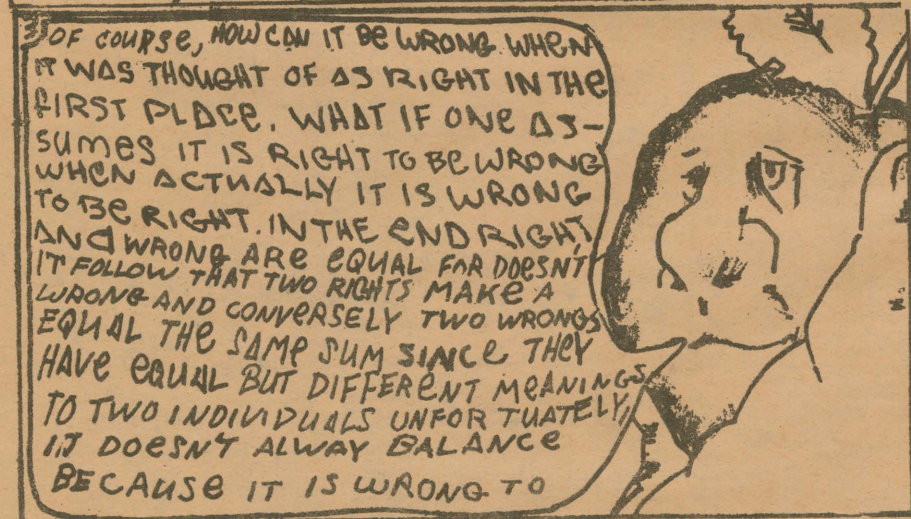 OF COURSE, HOW CAN IT BE WRONG WHEN
IT WAS THOUGHT OF AS RIGHT IN THE
FIRST PLACE. WHAT IF ONE AS-
SUMES IT IS RIGHT TO BE WRONG
WHEN ACTUALLY IT IS WRONG
TO BE RIGHT. IN THE END RIGHT
AND WRONG ARE EQUAL FOR DOESN'T
IT FOLLOW THAT TWO RIGHTS MAKE A
WRONG AND CONVERSELY TWO WRONGS
EQUAL THE SAME SUM SINCE THEY
HAVE EQUAL BUT DIFFERENT MEANINGS
TO TWO INDIVIDUALS UNFORTUATELY,
IT DOESN'T ALWAY BALANCE
BECAUSE IT IS WRONG TO